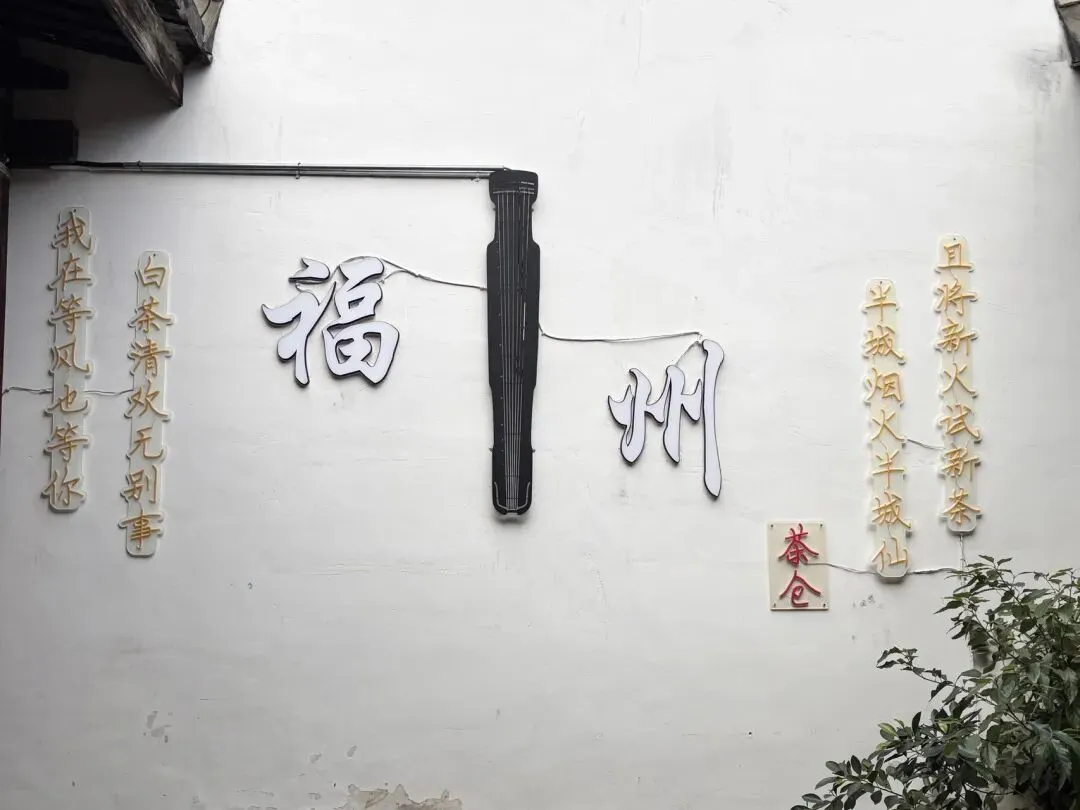 我在等风也等你
白茶清欢无别事
福州
且将新火试新茶
半城烟火半城仙
茶仓